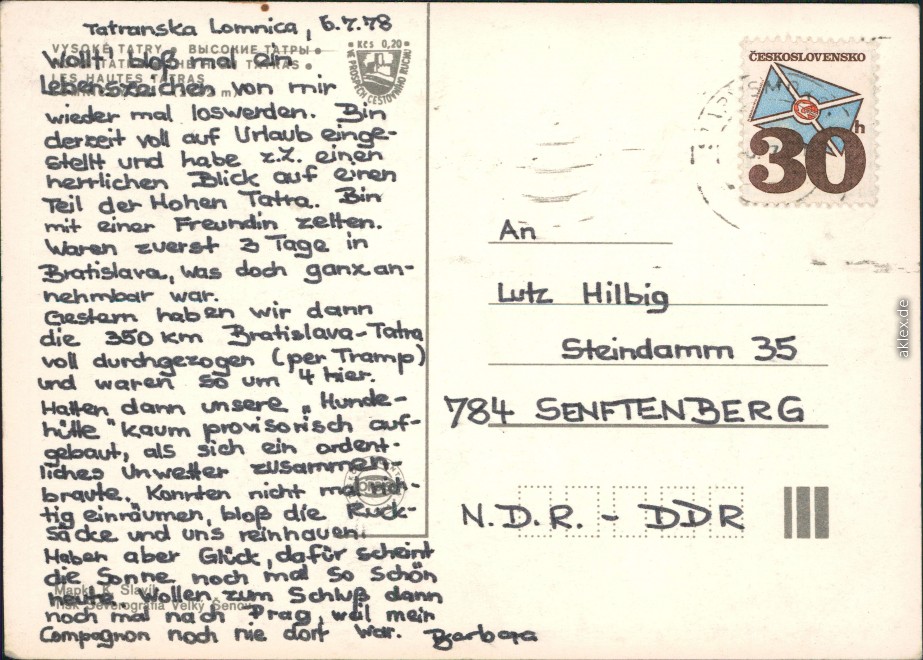 Tatranska Lomnica, 5.7.78
VYSOKÉ TATRY • ВЫСОКИЕ ТАТРЫ •
LES HAUTES TATRAS
Kčs 0,20
VE PROSPĚCH CESTOVNÍHO RUCHU
Wollt' bloß mal ein
Lebenszeichen von mir
wieder mal loswerden. Bin
derzeit voll auf Urlaub einge-
stellt und habe z.Z. einen
herrlichen Blick auf einen
Teil der Hohen Tatra. Bin
mit einer Freundin zelten.
Waren zuerst 3 Tage in
Bratislava, was doch ganz an-
nehmbar war.
Gestern haben wir dann
die 350 km Bratislava-Tatra
voll durchgezogen (per Tramp)
und waren so um 4 hier.
Hatten dann unsere „Hunde-
hütte" kaum provisorisch auf-
gebaut, als sich ein ordent-
liches Unwetter zusammen-
braute. Konnten nicht mal rich-
tig einräumen, bloß die Ruck-
säcke und uns reinhauen.
Haben aber Glück, dafür scheint
die Sonne noch mal so schön
heute. Wollen zum Schluß dann
noch mal nach Prag, weil mein
Compagnon noch nie dort war. Barbara
Mapka K. Slavík
Tisk Severografia Velký Šenov
ČESKOSLOVENSKO
30h
An
Lutz Hilbig
Steindamm 35
784 SENFTENBERG
N.D.R. - DDR
aklex.de